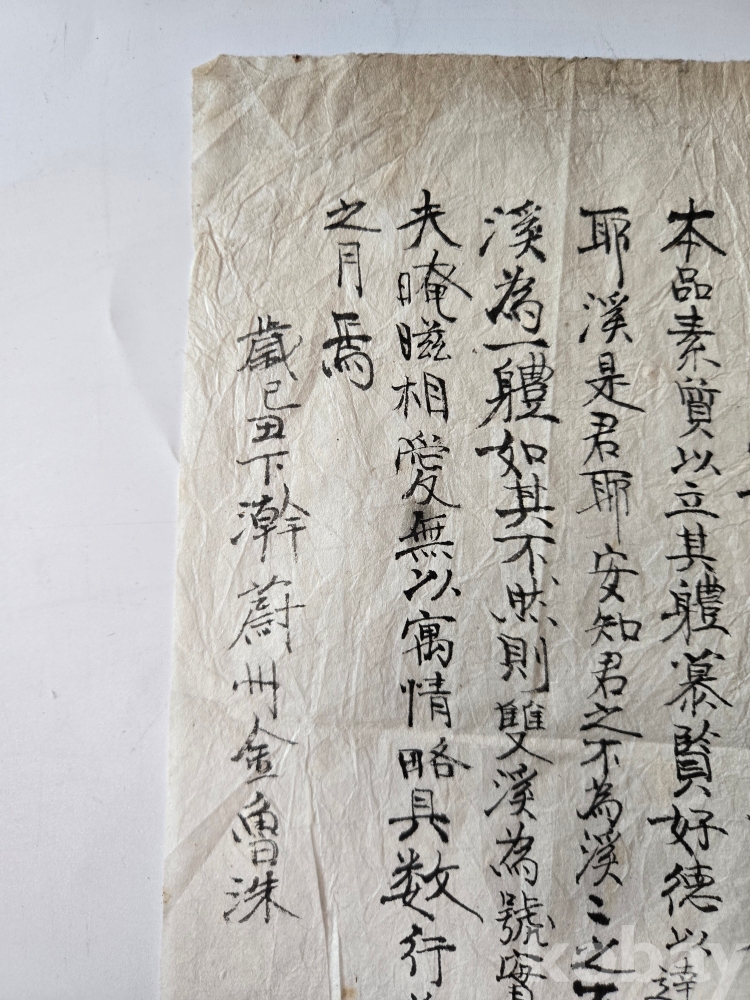 本品素質以立其軆慕賢好德以達
耶溪是君耶安知君之不為溪〻之不
溪為一軆如其不然則雙溪為號實
夫晻晿相愛無以寓情略具数行
之月焉
歲己丑下澣蔚州金魯洙
kobay